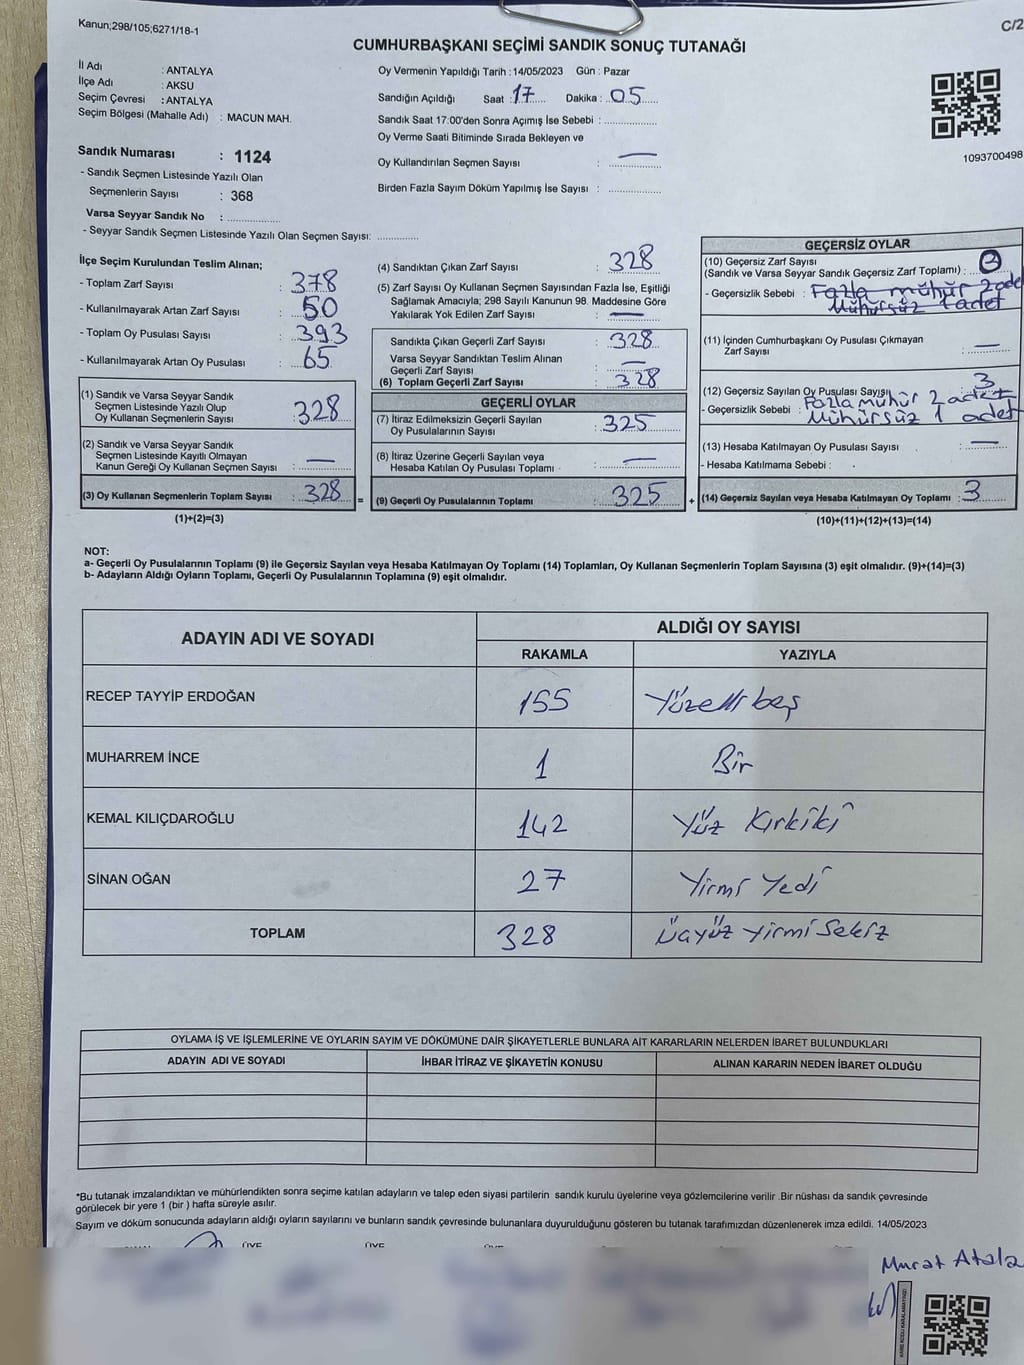 Kanun;298/105;6271/18-1
C/2
CUMHURBAŞKANI SEÇİMİ SANDIK SONUÇ TUTANAĞI
İl Adı : ANTALYA
İlçe Adı : AKSU
Seçim Çevresi : ANTALYA
Seçim Bölgesi (Mahalle Adı) : MACUN MAH.
Sandık Numarası : 1124
- Sandık Seçmen Listesinde Yazılı Olan
Seçmenlerin Sayısı : 368
Varsa Seyyar Sandık No : ..............
- Seyyar Sandık Seçmen Listesinde Yazılı Olan Seçmen Sayısı: ............
Oy Vermenin Yapıldığı Tarih : 14/05/2023 Gün : Pazar
Sandığın Açıldığı Saat : 17 Dakika : 05
Sandık Saat 17:00'den Sonra Açımış İse Sebebi : ..............
Oy Verme Saati Bitiminde Sırada Bekleyen ve
Oy Kullandırılan Seçmen Sayısı : —
Birden Fazla Sayım Döküm Yapılmış İse Sayısı : ..............
1093700498
İlçe Seçim Kurulundan Teslim Alınan;
- Toplam Zarf Sayısı : 378
- Kullanılmayarak Artan Zarf Sayısı : 50
- Toplam Oy Pusulası Sayısı : 393
- Kullanılmayarak Artan Oy Pusulası : 65
(1) Sandık ve Varsa Seyyar Sandık
Seçmen Listesinde Yazılı Olup
Oy Kullanan Seçmenlerin Sayısı : 328
(2) Sandık ve Varsa Seyyar Sandık
Seçmen Listesinde Kayıtlı Olmayan
Kanun Gereği Oy Kullanan Seçmen Sayısı : —
(3) Oy Kullanan Seçmenlerin Toplam Sayısı : 328 =
(1)+(2)=(3)
(4) Sandıktan Çıkan Zarf Sayısı : 328
(5) Zarf Sayısı Oy Kullanan Seçmen Sayısından Fazla İse, Eşitliği
Sağlamak Amacıyla; 298 Sayılı Kanunun 98. Maddesine Göre
Yakılarak Yok Edilen Zarf Sayısı : —
Sandıkta Çıkan Geçerli Zarf Sayısı : 328
Varsa Seyyar Sandıktan Teslim Alınan
Geçerli Zarf Sayısı : —
(6) Toplam Geçerli Zarf Sayısı : 328
GEÇERLİ OYLAR
(7) İtiraz Edilmeksizin Geçerli Sayılan
Oy Pusulalarının Sayısı : 325
(8) İtiraz Üzerine Geçerli Sayılan veya
Hesaba Katılan Oy Pusulası Toplamı : —
(9) Geçerli Oy Pusulalarının Toplamı : 325 +
GEÇERSİZ OYLAR
(10) Geçersiz Zarf Sayısı
(Sandık ve Varsa Seyyar Sandık Geçersiz Zarf Toplamı) :
- Geçersizlik Sebebi : Fazla mühür 2 adet
Mühürsüz 1 adet
(11) İçinden Cumhurbaşkanı Oy Pusulası Çıkmayan
Zarf Sayısı : —
(12) Geçersiz Sayılan Oy Pusulası Sayısı : 3
- Geçersizlik Sebebi : Fazla mühür 2 adet
Mühürsüz 1 adet
(13) Hesaba Katılmayan Oy Pusulası Sayısı : —
- Hesaba Katılmama Sebebi :
(14) Geçersiz Sayılan veya Hesaba Katılmayan Oy Toplamı : 3
(10)+(11)+(12)+(13)=(14)
NOT:
a- Geçerli Oy Pusulalarının Toplamı (9) ile Geçersiz Sayılan veya Hesaba Katılmayan Oy Toplamı (14) Toplamları, Oy Kullanan Seçmenlerin Toplam Sayısına (3) eşit olmalıdır. (9)+(14)=(3)
b- Adayların Aldığı Oyların Toplamı, Geçerli Oy Pusulalarının Toplamına (9) eşit olmalıdır.
ADAYIN ADI VE SOYADI ALDIĞI OY SAYISI
RAKAMLA YAZIYLA
RECEP TAYYİP ERDOĞAN 155 Yüzellibeş
MUHARREM İNCE 1 Bir
KEMAL KILIÇDAROĞLU 142 Yüz Kırkiki
SİNAN OĞAN 27 Yirmi Yedi
TOPLAM 328 Üçyüz Yirmi Sekiz
OYLAMA İŞ VE İŞLEMLERİNE VE OYLARIN SAYIM VE DÖKÜMÜNE DAİR ŞİKAYETLERLE BUNLARA AİT KARARLARIN NELERDEN İBARET BULUNDUKLARI
ADAYIN ADI VE SOYADI İHBAR İTİRAZ VE ŞİKAYETİN KONUSU ALINAN KARARIN NEDEN İBARET OLDUĞU
*Bu tutanak imzalandıktan ve mühürlendikten sonra seçime katılan adayların ve talep eden siyasi partilerin sandık kurulu üyelerine veya gözlemcilerine verilir .Bir nüshası da sandık çevresinde
görülecek bir yere 1 (bir ) hafta süreyle asılır.
Sayım ve döküm sonucunda adayların aldığı oyların sayılarını ve bunların sandık çevresinde bulunanlara duyurulduğunu gösteren bu tutanak tarafımızdan düzenlenerek imza edildi. 14/05/2023
ÜYE ÜYE
Murat Atala